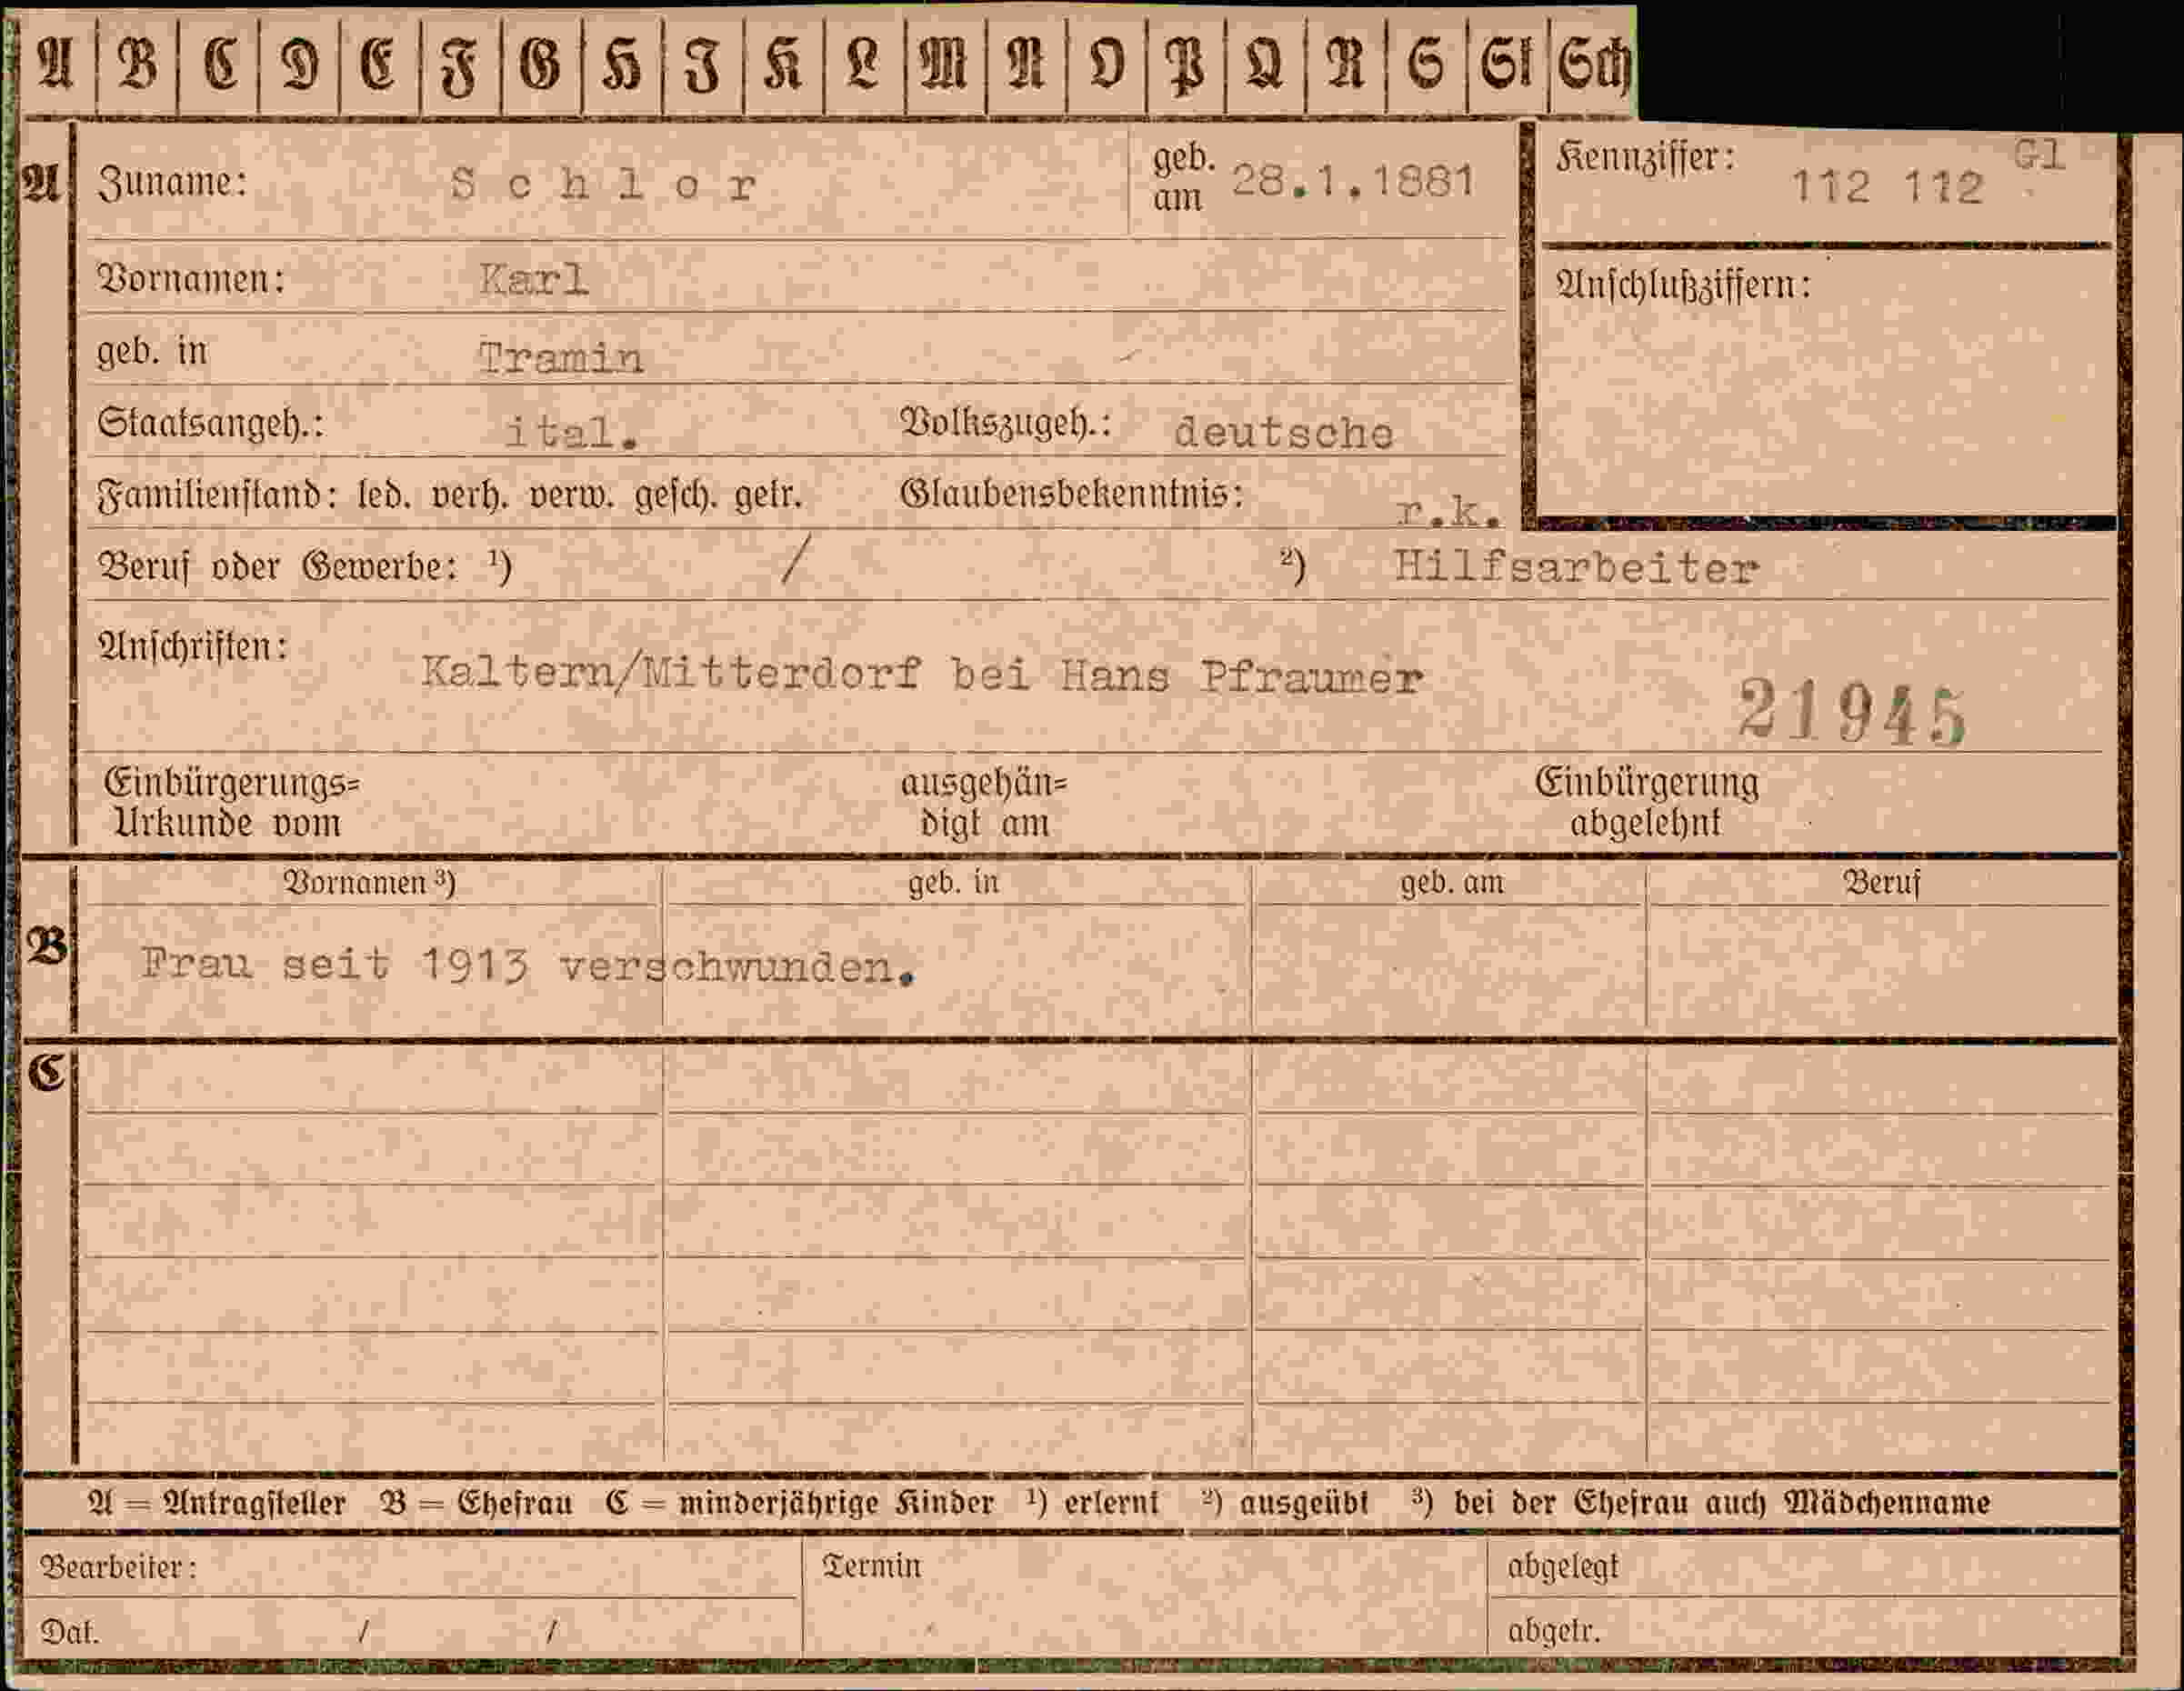 A B C D E F G H I K L M N O P Q R S St Sch
A Zuname: Schlor geb. am 28.1.1881 Kennziffer: 112 112 Gl
Vornamen: Karl Anschlußziffern:
geb. in Tramin
Staatsangeh.: ital. Volkszugeh.: deutsche
Familienstand: led. verh. verw. gesch. getr. Glaubensbekenntnis: r.k.
Beruf oder Gewerbe: ¹) / ²) Hilfsarbeiter
Anschriften: Kaltern/Mitterdorf bei Hans Pfraumer
21945
Einbürgerungs= ausgehän= Einbürgerung
Urkunde vom digt am abgelehnt
Vornamen ³) geb. in geb. am Beruf
B Frau seit 1913 verschwunden.
C
A = Antragsteller B = Ehefrau C = minderjährige Kinder ¹) erlernt ²) ausgeübt ³) bei der Ehefrau auch Mädchenname
Bearbeiter: Termin abgelegt
Dat. / / abgetr.